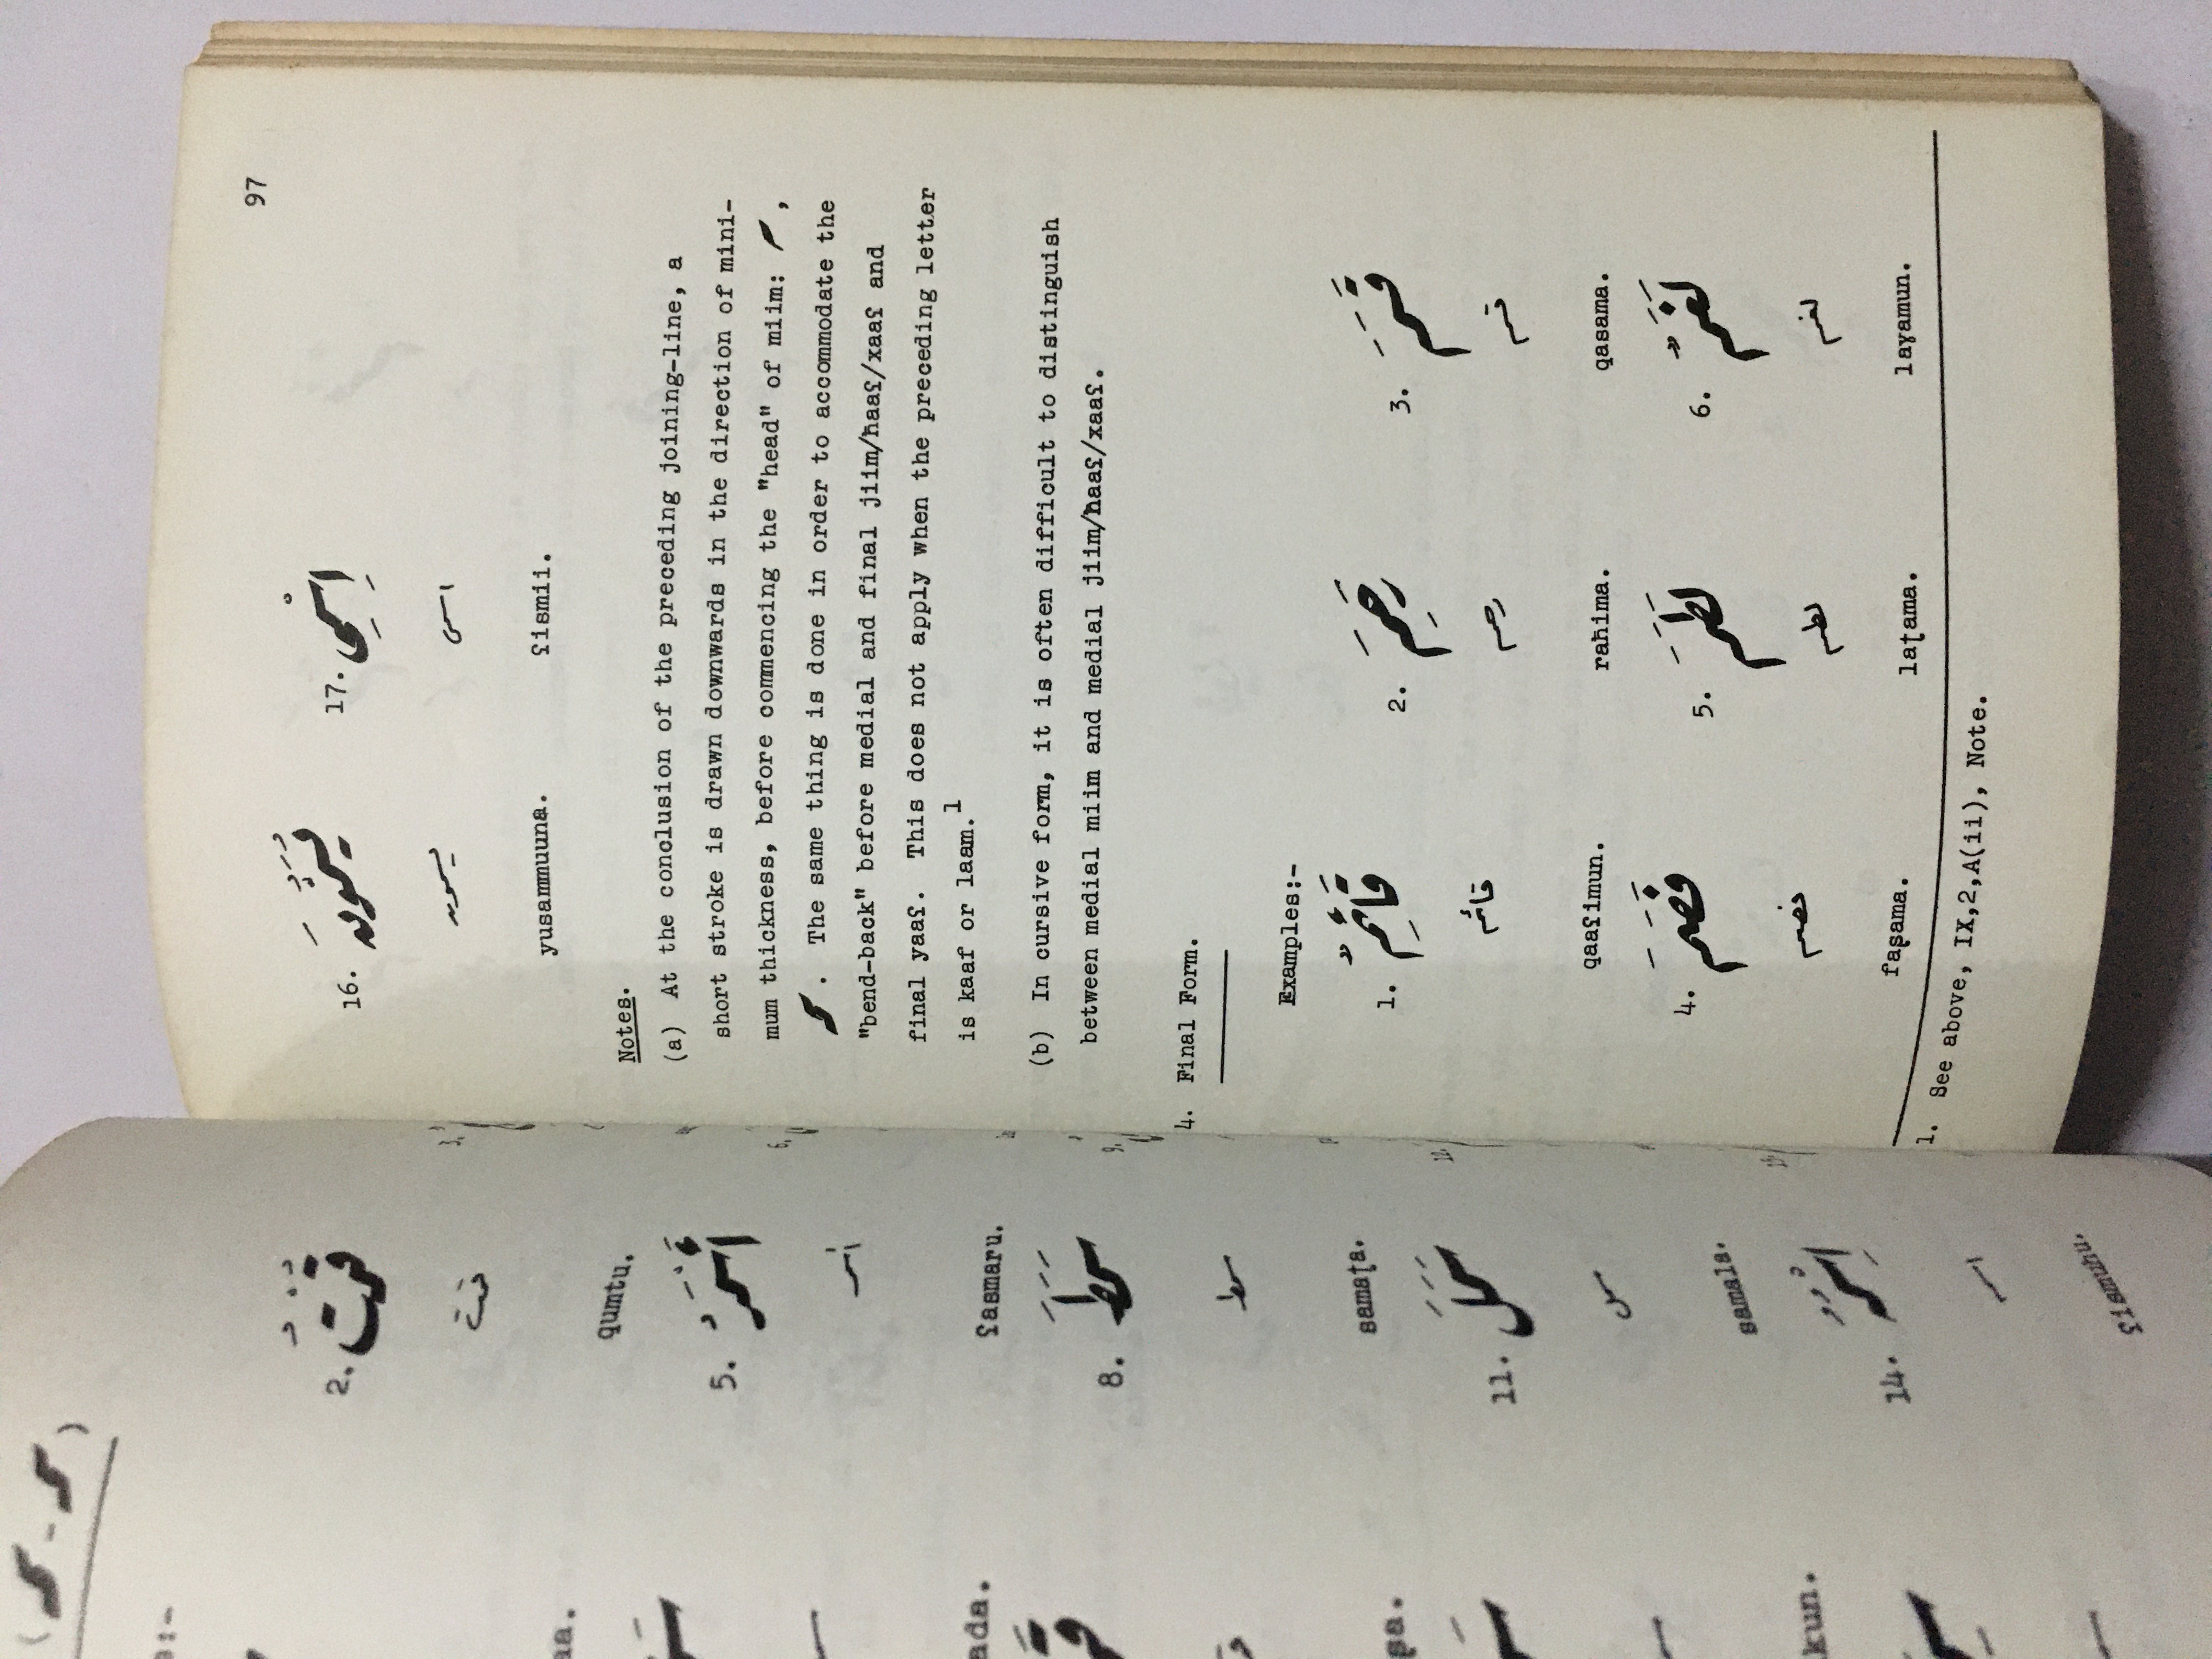 2.
قُمْتُ
قمت
qumtu.
5.
أَسْمَرُ
أسمر
ʕasmaru.
8.
سَمَطَ
سمط
samaṭa.
11.
سَمَلَ
سمل
samala.
14.
اِسْمُهُ
ʕismuhu.
97
16. يُسَمُّونَ 17. اِسْمِي
يسمون اسمي
yusammuuna. ʕismii.
Notes.
(a) At the conclusion of the preceding joining-line, a
short stroke is drawn downwards in the direction of mini-
mum thickness, before commencing the "head" of miim: ,
. The same thing is done in order to accommodate the
"bend-back" before medial and final jiim/ħaaʕ/xaaʕ and
final yaaʕ. This does not apply when the preceding letter
is kaaf or laam.1
(b) In cursive form, it is often difficult to distinguish
between medial miim and medial jiim/ħaaʕ/xaaʕ.
4. Final Form.
Examples:-
1. قَائِمٌ 2. رَحِمَ 3. قَسَمَ
قائم رحم قسم
qaaʕimun. raħima. qasama.
4. فَصَمَ 5. لَطَمَ 6. لَغَمٌ
فصم لطم لغم
faṣama. laṭama. laɣamun.
1. See above, IX,2,A(ii), Note.